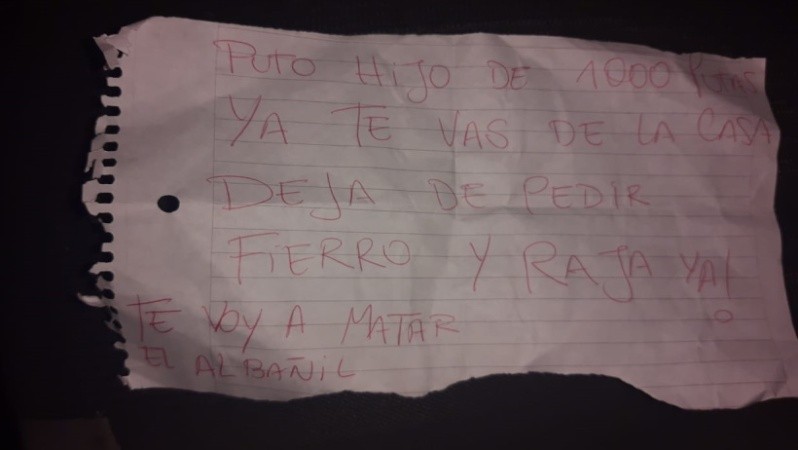 PUTO HIJO DE 1000 PUTAS
YA TE VAS DE LA CASA
DEJA DE PEDIR
FIERRO Y RAJA YA!
TE VOY A MATAR
EL ALBAÑIL